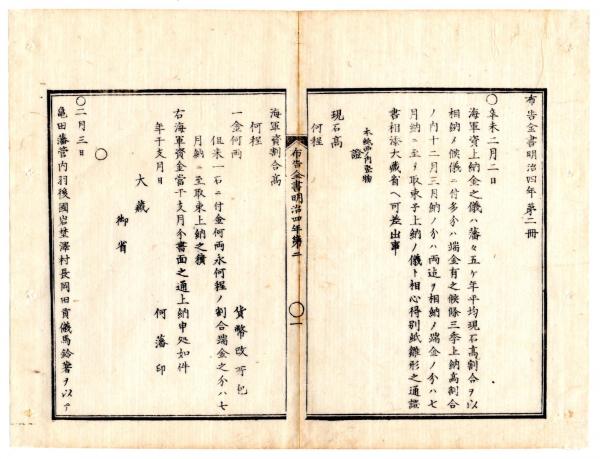 布告全書明治四年第二冊
○辛未二月二日
海軍資上納金之儀ハ藩々五ヶ年平均現石高割合ヲ以
相納ノ候儀ニ付多分ハ端金有之候條三季上納高割合
ノ内十二月三月納ノ分ハ両迠ヲ相納ノ端金ノ分ハ七
月納ニ至ヲ取束子上納ノ儀ト相心得別紙雛形之通證
書相添大藏省ヘ可差出事
證
現石高
何程
海軍資割合高
何程
一金何両 貨幣改所包
但米一石ニ付金何両永何程ノ割合端金之分ハ七
月納ニ至取束上納之積
右海軍資金當干支月分書面之通上納申処如件
年干支月日 何藩印
大藏
御省
布告全書明治四年第二 ○一
○二月三日 ○
亀田藩管内羽後國岩埜澤村長岡田貢儀馬鈴薯ヲ以テ